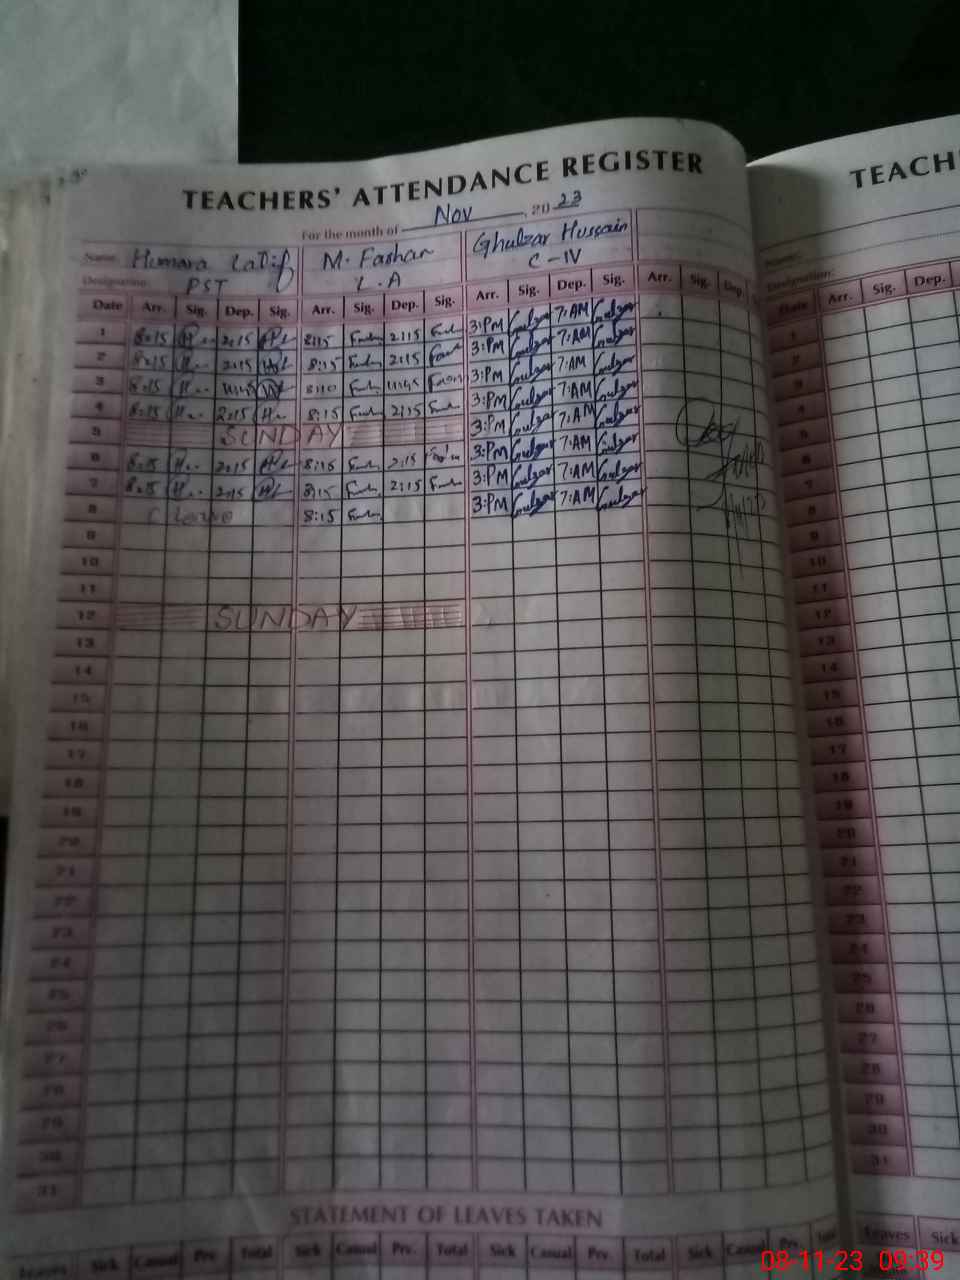 TEACHERS' ATTENDANCE REGISTER
TEACH
For the month of Nov, 2023
Name: Humara Latif M. Farhan Ghulzar Hussain
Designation: PST L.A C-IV
Name:
Designation:
Date Arr. Sig. Dep. Sig. Arr. Sig. Dep. Sig. Arr. Sig. Dep. Sig. Arr. Sig. Dep. Date Arr. Sig. Dep.
1 8:15 2:15 8:15 2:15 3:PM Gulzar 7:AM Gulzar 1
2 8:15 2:15 8:15 2:15 3:PM Gulzar 7:AM Gulzar 2
3 8:15 11:45 8:10 11:45 3:PM Gulzar 7:AM Gulzar 3
4 8:15 2:15 8:15 2:15 3:PM Gulzar 7:AM Gulzar 4
5 SUNDAY 3:PM Gulzar 7:AM Gulzar 5
6 8:15 2:15 8:15 2:15 3:PM Gulzar 7:AM Gulzar 6
7 8:15 2:15 8:15 2:15 3:PM Gulzar 7:AM Gulzar 7
8 C Leave 8:15 3:PM Gulzar 7:AM Gulzar 8
9 9
10 10
11 11
12 SUNDAY 12
13 13
14 14
15 15
16 16
17 17
18 18
19 19
20 20
21 21
22 22
23 23
24 24
25 25
26 26
27 27
28 28
29 29
30 30
31 31
STATEMENT OF LEAVES TAKEN
Leaves Sick Casual Prv. Total Sick Casual Prv. Total Sick Casual Prv. Total Sick Casual Prv. Leaves Sick
08-11-23 09:39